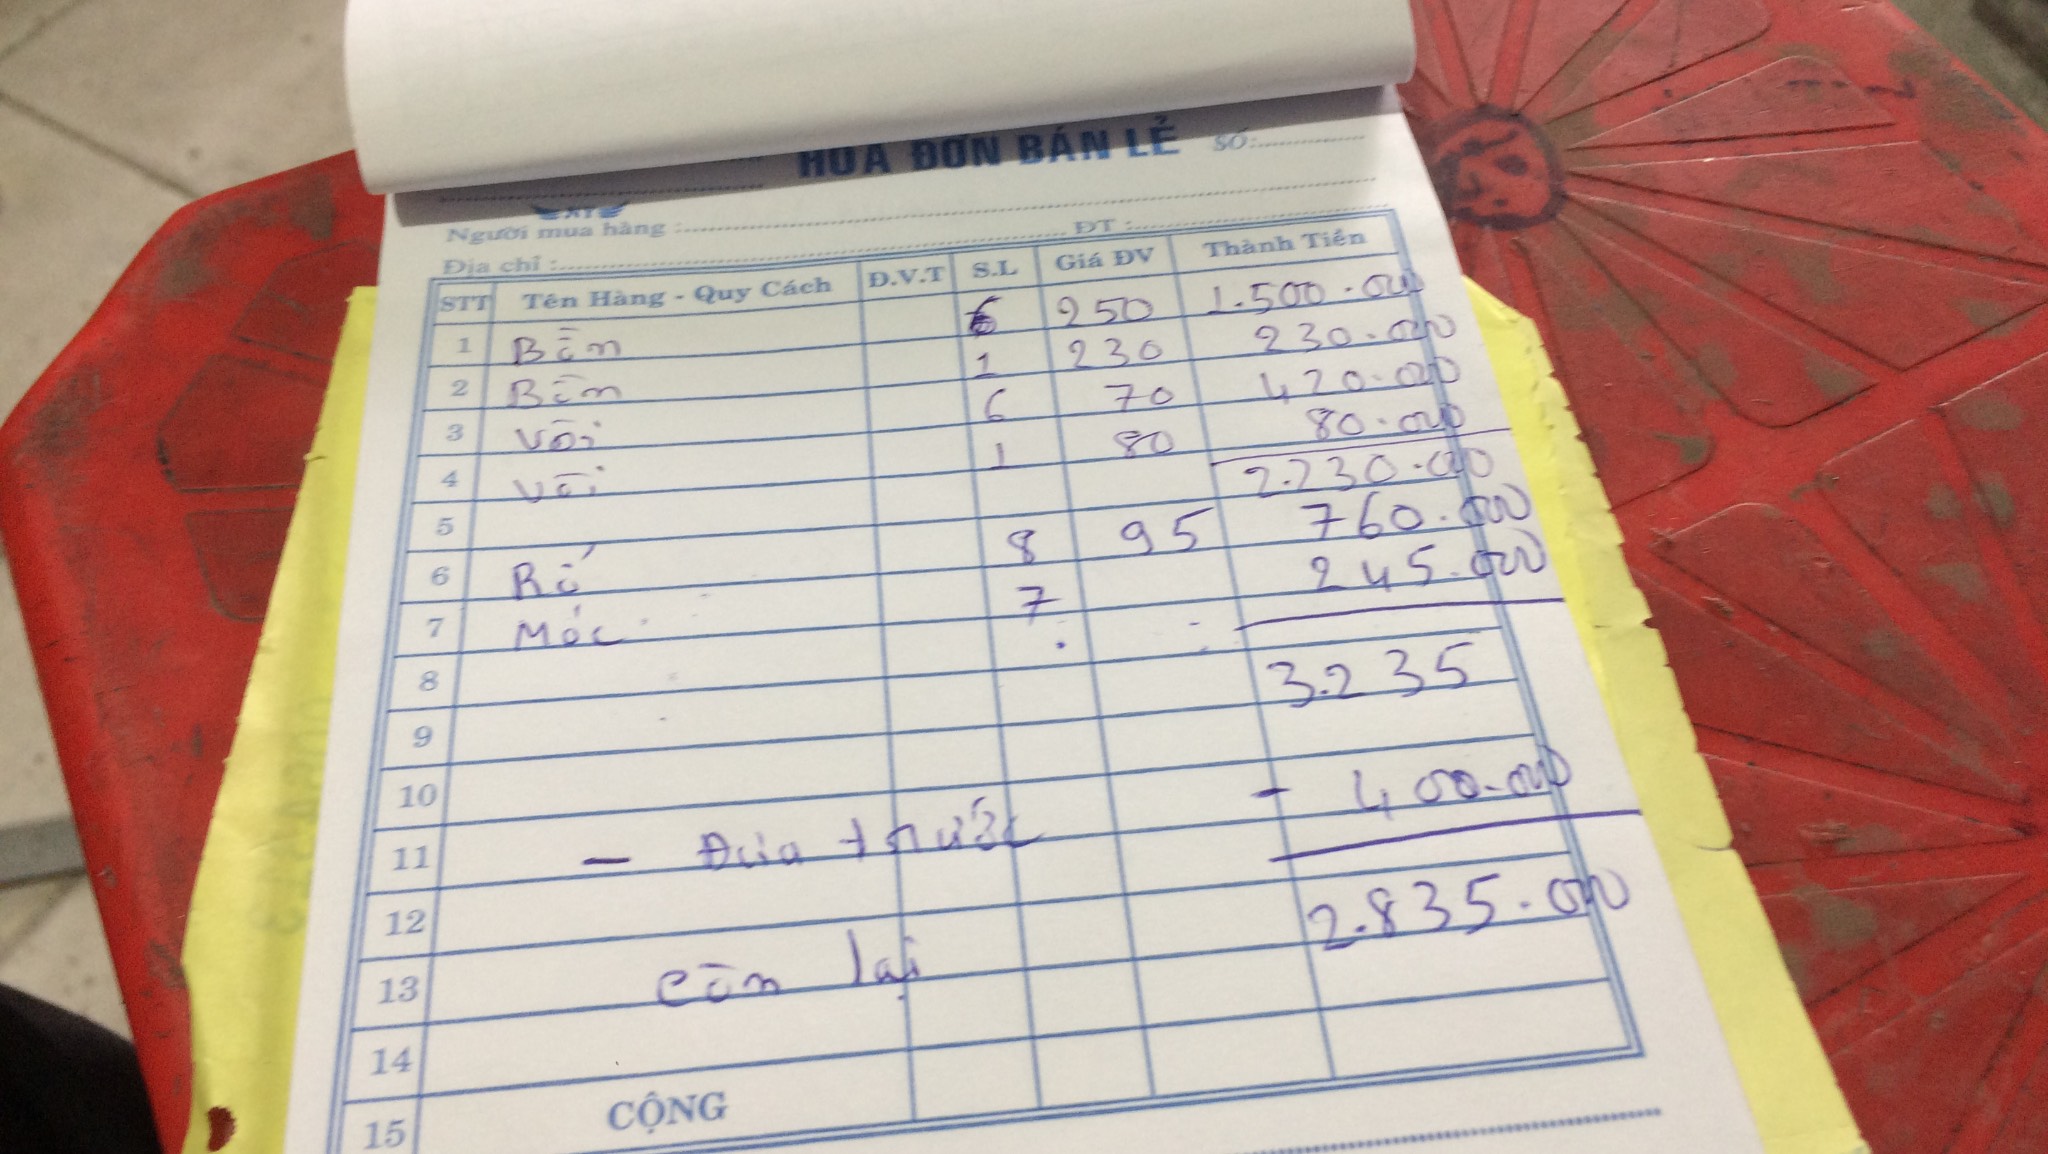 HÓA ĐƠN BÁN LẺ SỐ:
Người mua hàng : ĐT :
Địa chỉ :
STT Tên Hàng - Quy Cách Đ.V.T S.L Giá ĐV Thành Tiền
1 Bồn 6 250 1.500.000
2 Bồn 1 230 230.000
3 Vòi 6 70 420.000
4 Vòi 1 80 80.000
5 2.230.000
6 Rổ 8 95 760.000
7 Móc 7 245.000
8 3.235
9
10 - 400.000
11 - Đưa trước
12 2.835.000
13 còn lại
14
15 CỘNG